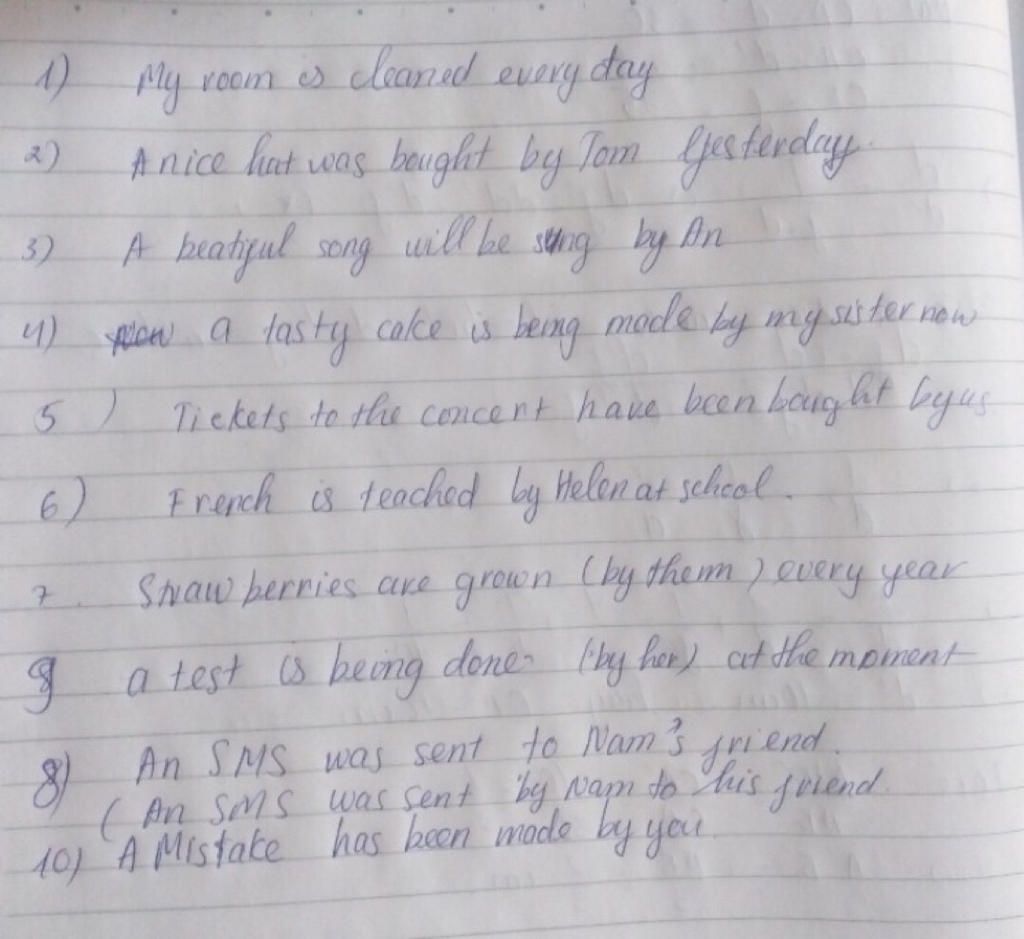 1) My room is cleaned every day
2) A nice hat was bought by Tom Yesterday.
3) A beatiful song will be sung by An
4) Now a tasty cake is being made by my sister now
5) Tickets to the concert have been bought by us
6) French is teached by Helen at school.
7. Strawberries are grown (by them) every year
9 a test is being done (by her) at the moment
8) An SMS was sent to Nam's friend.
( An SMS was sent by Nam to his friend.
10) A Mistake has been made by you.